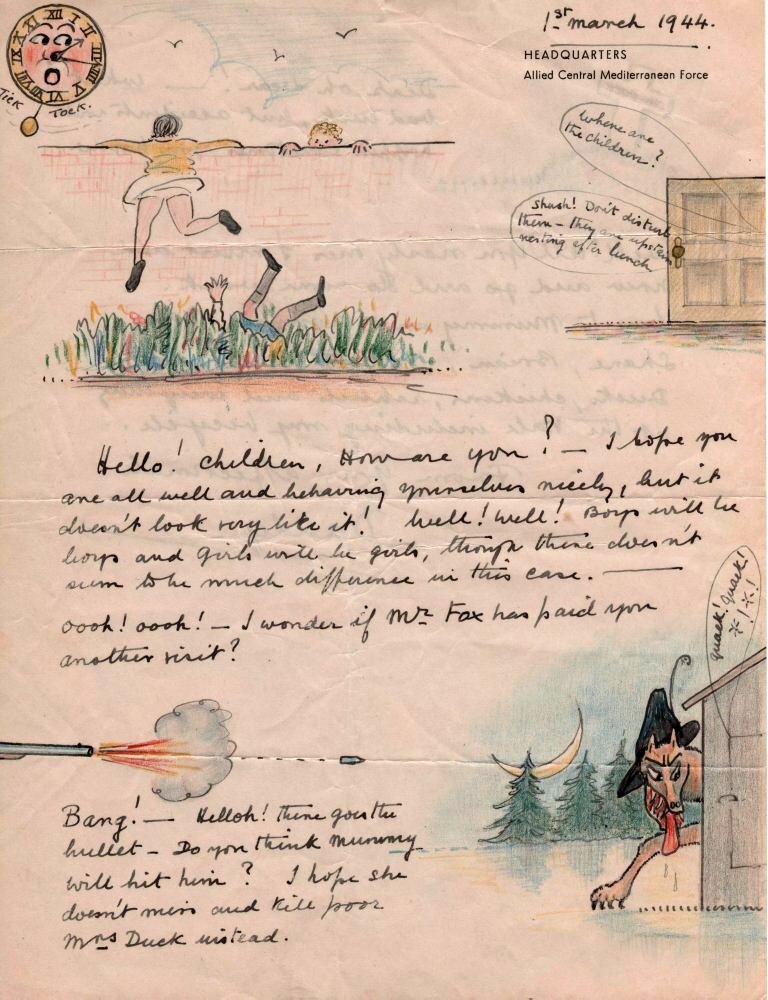 1st march 1944.
HEADQUARTERS
Allied Central Mediterranean Force
XII I II III IIII V VI VII VIII IX X XI
Tick Tock.
Where are
the children?
Shush! Don't disturb
them – they are upstairs
resting after lunch
Hello! children, How are you? — I hope you
are all well and behaving yourselves nicely, but it
doesn't look very like it! Well! Well! Boys will be
boys and Girls will be girls, though there doesn't
seem to be much difference in this case. —
oooh! oooh! — I wonder if Mr Fox has paid you
another visit?
quack! quack!
Bang! — Helloh! there goes the
bullet – Do you think mummy
will hit him? I hope she
doesn't miss and kill poor
Mrs Duck instead.